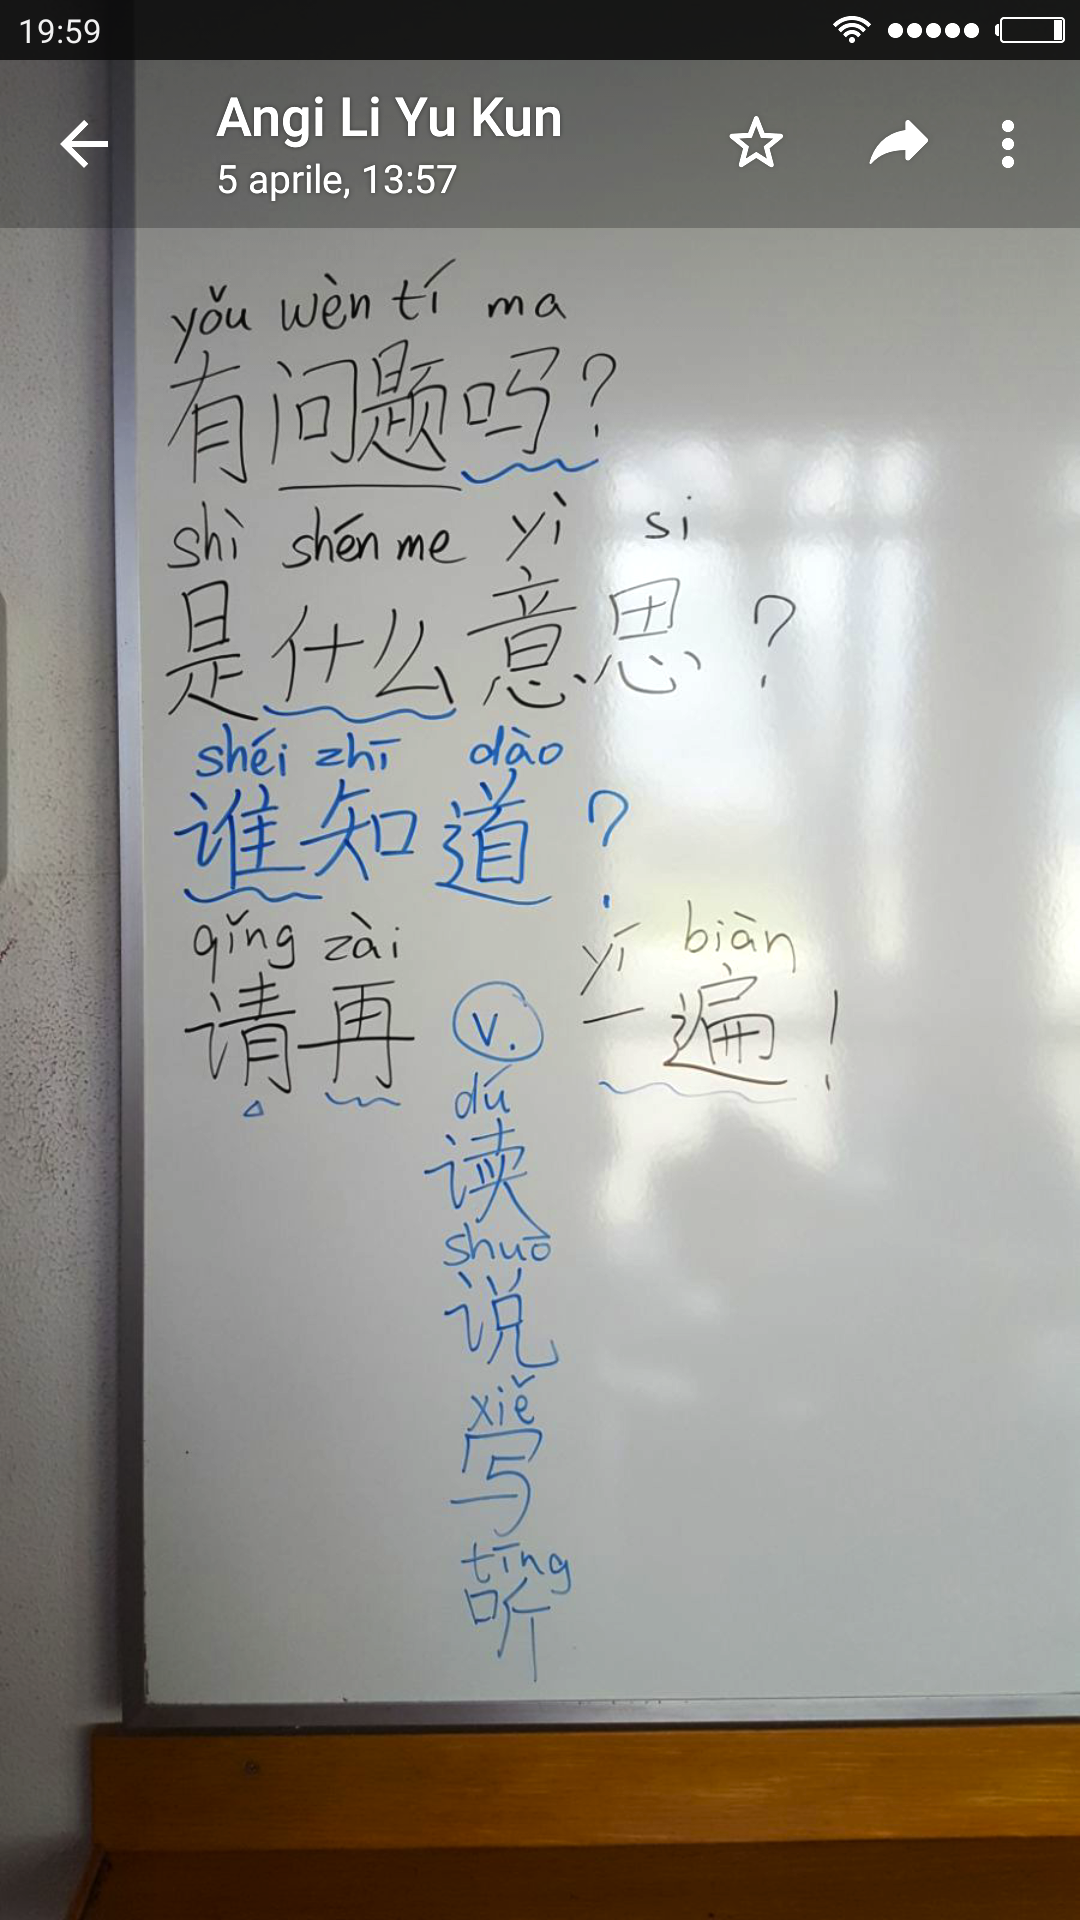 19:59
Angi Li Yu Kun
5 aprile, 13:57
yǒu wèn tí ma
有问题吗?
shì shén me yì si
是什么意思?
shéi zhī dào
谁知道?
qǐng zài yí biàn
请再 V. 一遍!
dú
读
shuō
说
xiě
写
tīng
听